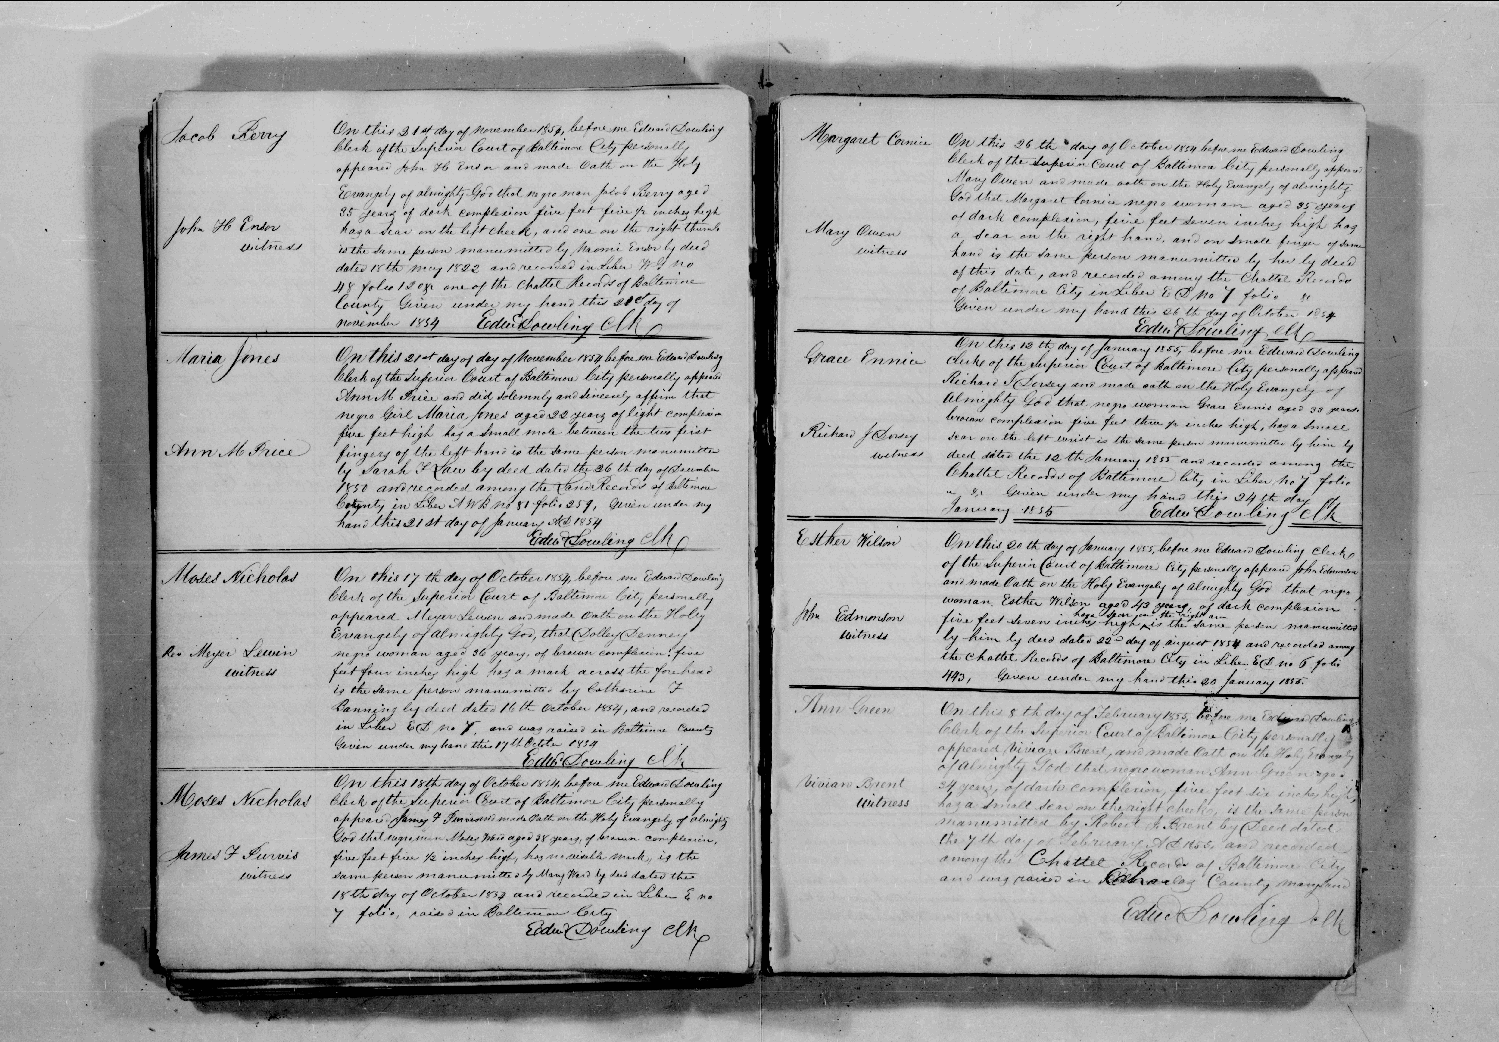 Jacob Berry
On this 21st day of November 1854, before me Edward Dowling
Clerk of the Superior Court of Baltimore City personally
appeared John H Ensor and made Oath on the Holy
Evangely of almighty God that negro man Jacob Berry aged
35 years of dark complexion five feet five ½ inches high
has a scar on the left cheek, and one on the right thumb
is the same person manumitted by Naomi Ensor by deed
dated 18th may 1822 and recorded in Liber W G no
48 folio 120 &c one of the Chattel Records of Baltimore
County Given under my hand this 21st day of
november 1854 Edwd Dowling Clk
John H Ensor
witness
Maria Jones
On this 21st day of day of November 1854 before me Edward Dowling
Clerk of the Superior Court of Baltimore City personally appeared
Ann M Price and did solemnly and sincerely affirm that
negro Girl Maria Jones aged 22 years of light complexion
five feet high has a small mole between the two first
fingers of the left hand is the same person manumitted
by Sarah F Law by deed dated the 26th day of December
1850 and recorded among the Land Records of Baltimore
County in Liber A W B no 81 folio 259, Given under my
hand this 21st day of January AD 1854
Edwd Dowling Clk
Ann M Price
Moses Nicholas
On this 17th day of October 1854, before me Edward Dowling
Clerk of the Superior Court of Baltimore City personally
appeared Meyer Lewin and made Oath on the Holy
Evangely of Almighty God, that Dolley Denney
negro woman aged 36 years, of brown complexion five
feet four inches high has a mark across the forehead
is the same person manumitted by Catharine F
Banning by deed dated 16th October 1854, and recorded
in Liber E D no 7, and was raised in Baltimore County
Given under my hand this 17th Octobr 1854
Edwd Dowling Clk
Rev Meyer Lewin
witness
Moses Nicholas
On this 18th day of October 1854, before me Edward Dowling
Clerk of the Superior Court of Baltimore City personally
appeared James F Purvis and made Oath on the Holy Evangely of almighty
God that negro man Moses aged 38 years, of brown complexion,
five feet five ½ inches high, has no visible mark, is the
same person manumitted by Mary Ward by deed dated the
18th day of October 1854 and recorded in Liber E no
7 folio, raised in Baltimore City
Edwd Dowling Clk
James F Purvis
witness
Margaret Cornice
On this 26th day of October 1854 before me Edward Dowling
Clerk of the Superior Court of Baltimore City personally appeared
Mary Owen and made oath on the Holy Evangely of almighty
God that Margaret Cornice negro woman aged 35 years
of dark complexion, five feet seven inches high has
a scar on the right hand, and on small finger of same
hand is the same person manumitted by her by deed
of this date, and recorded among the Chattel Records
of Baltimore City in Liber E D no 7 folio "
Given under my hand this 26th day of October 1854
Edwd Dowling Clk
Mary Owen
witness
Grace Ennis
On this 12th day of January 1855, before me Edward Dowling
Clerk of the Superior Court of Baltimore City personally appeared
Richard J Dorsey and made oath on the Holy Evangely of
Almighty God that negro woman Grace Ennis aged 33 years
brown complexion five feet three ½ inches high, has a small
scar on the left wrist is the same person manumitted by him by
deed dated the 12th January 1855 and recorded among the
Chattel Records of Baltimore City in Liber no 7 folio
Given under my hand this 24th day
January 1855 Edwd Dowling Clk
Richard J Dorsey
witness
Esther Wilson
On this 20th day of January 1855, before me Edward Dowling Clerk
of the Superior Court of Baltimore City personally appeared John Edmonson
and made Oath on the Holy Evangely of almighty God that negro
woman Esther Wilson aged 43 years, of dark complexion
has a scar on the right arm
five feet seven inches high is the same person manumitted
by him by deed dated 22nd day of august 1854 and recorded among
the Chattel Records of Baltimore City in Liber E D no 6 folio
443, Given under my hand this 20 January 1855.
John Edmonson
witness
Ann Green
On this 8th day of February 1855, before me Edward Dowling
Clerk of the Superior Court of Baltimore City, personally
appeared Vivian Brent, and made Oath on the Holy Evangely
of almighty God that negro woman Ann Green age
34 years, of dark complexion, five foot six inches high
has a small scar on the right cheek, is the same person
manumitted by Robert J Brent by Deed dated
the 7th day of February AD 1855, and recorded
among the Chattel Records of Baltimore City
and was raised in Charles County Maryland
Edwd Dowling Clk
Vivian Brent
witness